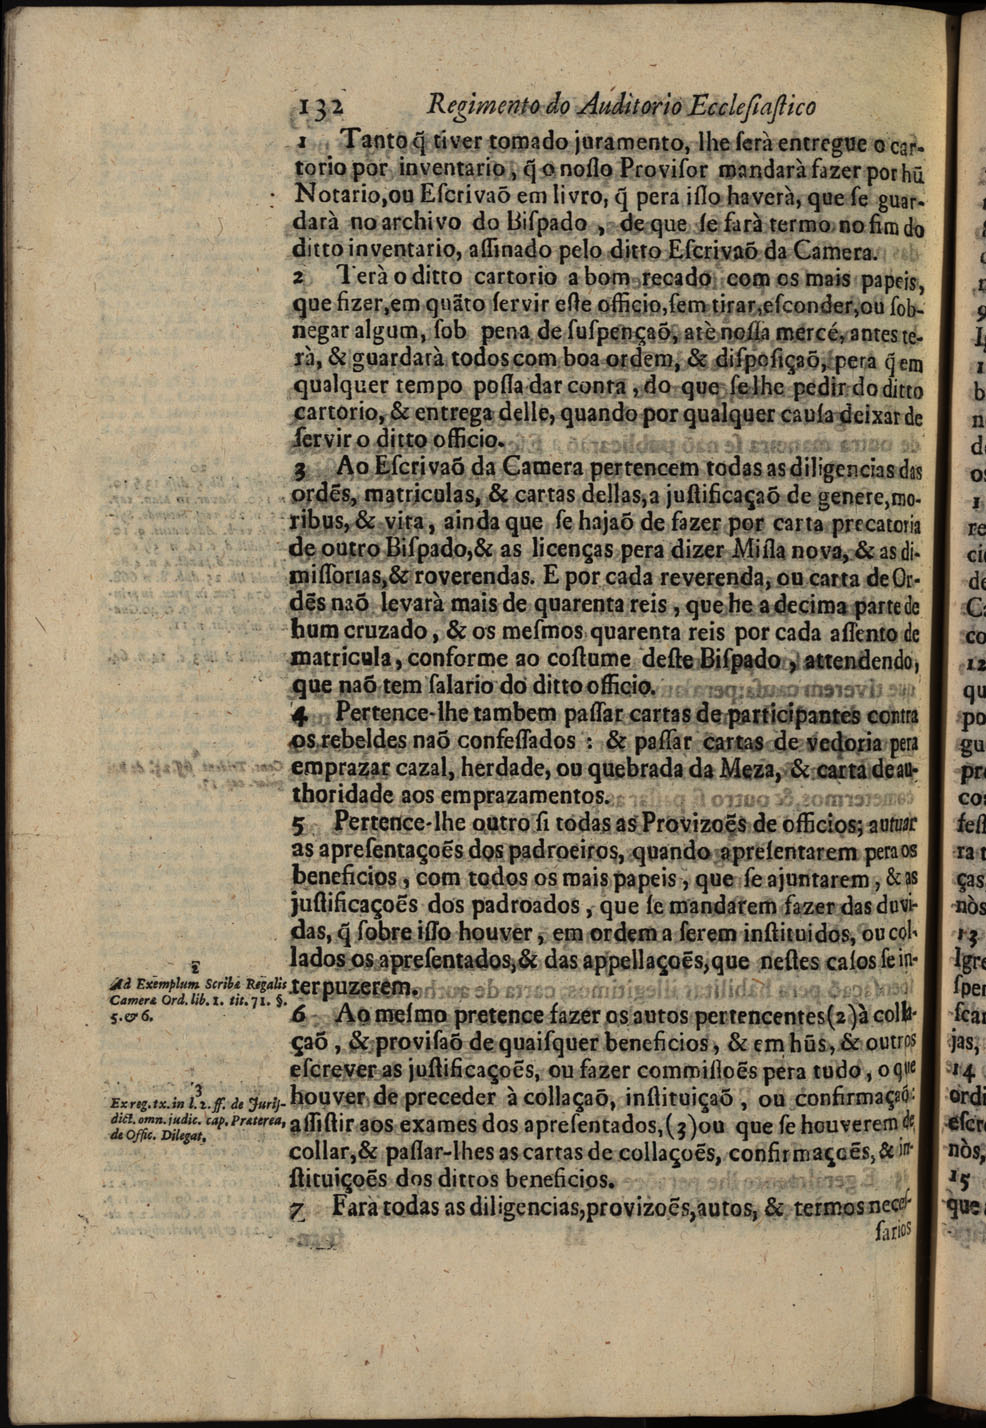 132 Regimento do Auditorio Ecclesiastico
1 Tanto q̃ tiver tomado juramento, lhe ſerà entregue o car-
torio por inventario, q̃ o noſſo Proviſor mandarà fazer por hũ
Notario,ou Eſcrivaõ em livro, q̃ pera iſſo haverà, que ſe guar-
darà no archivo do Biſpado, de que ſe farà termo no fim do
ditto inventario, aſſinado pelo ditto Eſcrivaõ da Camera.
2 Terà o ditto cartorio a bom recado com os mais papeis,
que fizer,em quãto ſervir eſte officio,ſem tirar,eſconder,ou ſob-
negar algum, ſob pena de ſuſpençaõ, atè noſſa mercé, antes te-
rà, & guardarà todos com boa ordem, & diſpoſiçaõ, pera q̃ em
qualquer tempo poſſa dar conta, do que ſe lhe pedir do ditto
cartorio, & entrega delle, quando por qualquer cauſa deixar de
ſervir o ditto officio.
3 Ao Eſcrivaõ da Camera pertencem todas as diligencias das
ordẽs, matriculas, & cartas dellas,a juſtificaçaõ de genere,mo-
ribus, & vita, ainda que ſe hajaõ de fazer por carta precatoria
de outro Biſpado,& as licenças pera dizer Miſſa nova, & as di-
miſſorias,& roverendas. E por cada reverenda, ou carta de Or-
dẽs naõ levarà mais de quarenta reis, que he a decima parte de
hum cruzado, & os meſmos quarenta reis por cada aſſento de
matricula, conforme ao coſtume deſte Biſpado, attendendo,
que naõ tem ſalario do ditto officio.
4 Pertence-lhe tambem paſſar cartas de participantes contra
os rebeldes naõ confeſſados: & paſſar cartas de vedoria pera
emprazar cazal, herdade, ou quebrada da Meza, & carta de au-
thoridade aos emprazamentos.
5 Pertence-lhe outro ſi todas as Provizoẽs de officios; autuar
as apreſentaçoẽs dos padroeiros, quando apreſentarem pera os
beneficios, com todos os mais papeis, que ſe ajuntarem, & as
juſtificaçoẽs dos padroados, que ſe mandarem fazer das duvi-
das, q̃ ſobre iſſo houver, em ordem a ſerem inſtituidos, ou col-
lados os apreſentados,& das appellaçoẽs,que neſtes caſos ſe in-
terpuzerem.
2
Ad Exemplum Scribæ Regalis
Cameræ Ord. lib. 1. tit. 71. §.
5. & 6.
6 Ao meſmo pretence fazer os autos pertencentes(2)à colla-
çaõ, & proviſaõ de quaiſquer beneficios, & em hũs, & outros
eſcrever as juſtificaçoẽs, ou fazer commiſſoẽs pera tudo, o que
houver de preceder à collaçaõ, inſtituiçaõ, ou confirmaçaõ:
aſſiſtir aos exames dos apreſentados,(3)ou que ſe houverem de
collar,& paſſar-lhes as cartas de collaçoẽs, confirmaçoẽs, & in-
ſtituiçoẽs dos dittos beneficios.
3
Ex reg. tx. in l. 2. ff. de Juriſ-
dict. omn. judic. cap. Præterea,
de Offic. Dilegat,
7 Farà todas as diligencias,provizoẽs,autos, & termos neceſ-
ſarios